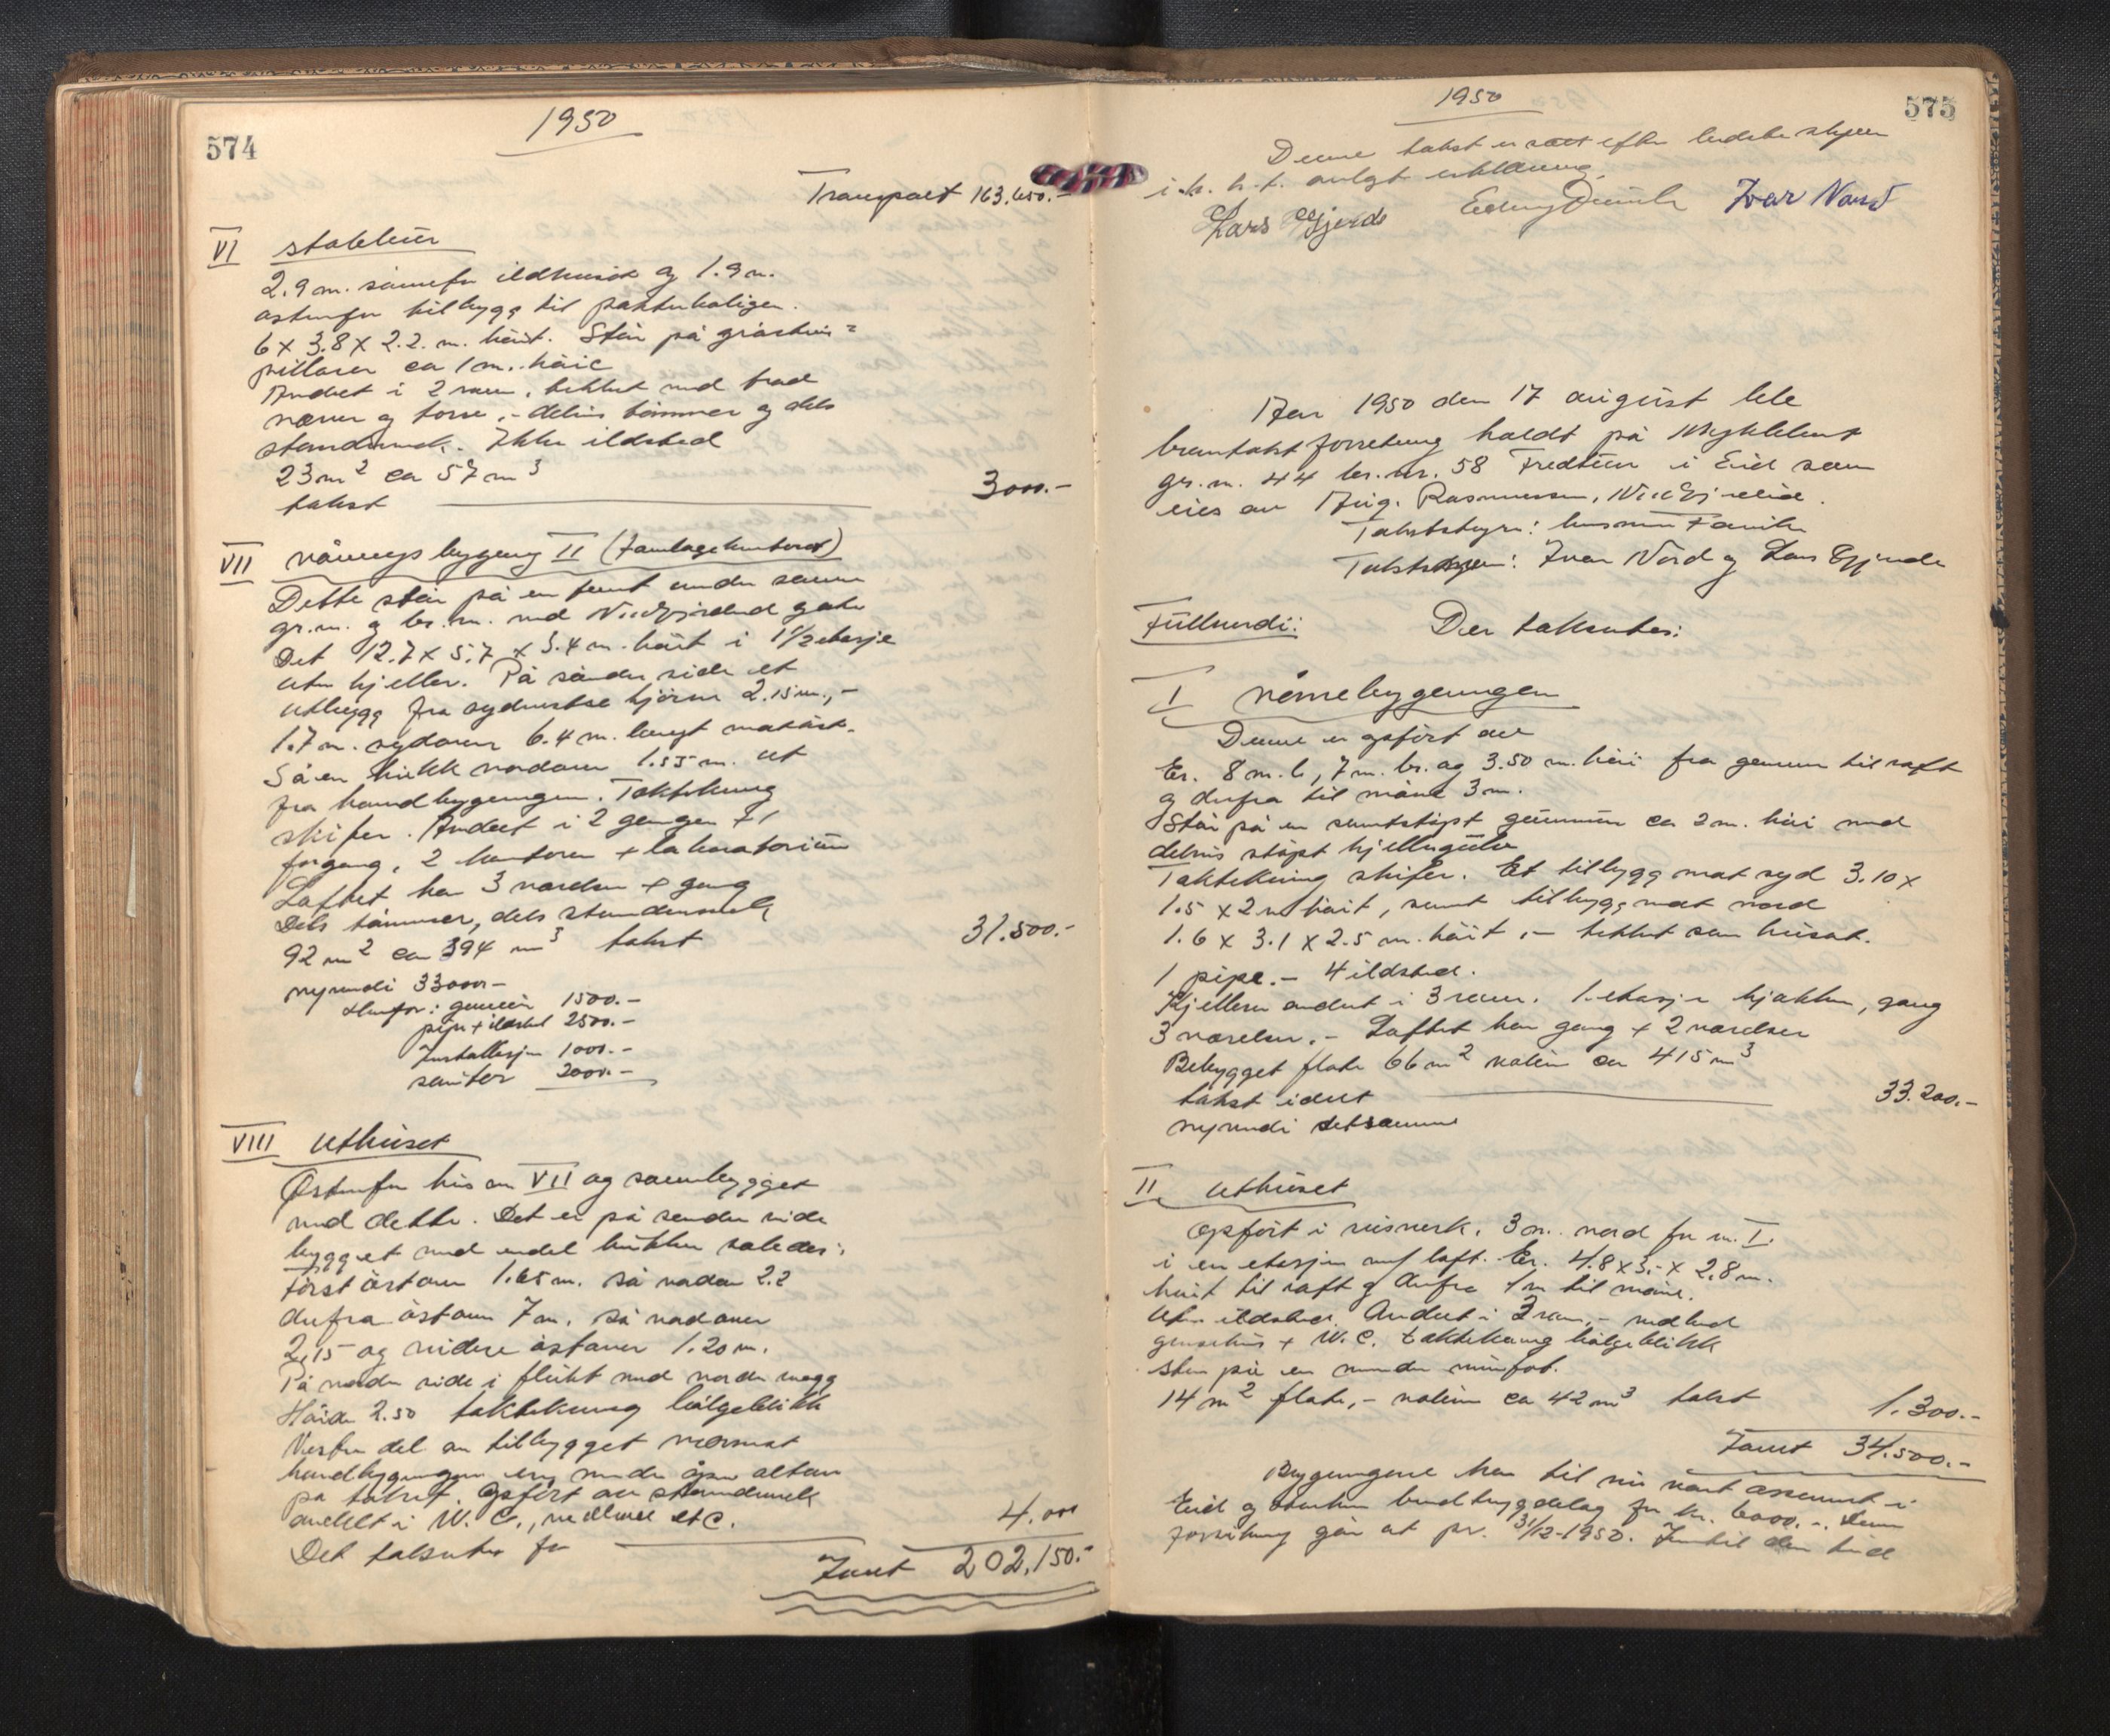 574
1950
Transport 163.650.-
VI stabbur
2.9 m. sønnefor ildhuset og 1.9 m.
østenfor tilbygg til
6 x 3.8 x 2.2. m. høit. Står på gråsteins=
pillarer ca 1 m. høie
Andret i 2 rum, tekket med
never og torv, - delvis tømmer og dels
standerverk. Ikke ildsted
23 m2 ca 57 m3
takst 3000.-
VII våningsbygning II
Dette står på en tomt under samme
gr.nr. og br.nr. med gate
Det 12.7 x 5.7 x 5.4 m. høit i 1 1/2 etasje
uten kjeller. På søndre side et
utbygg fra sydvestre hjørne 2.15 m., -
1.7 m. sydover 6.4 m. langt mot øst.
Så en knekk nordover 1.55 m. ut
fra hovedbygningen. Taktekning
skifer. Andret i 2 ganger +1
forgang, 2 kontorer + laboratorium
Loftet har 3 værelser + gang
Dels tømmer, dels standerverk
92 m2 ca 394 m3 takst 31.500.-
nyverdi 33000-
Herfor: grunmur 1500.-
pipe + ildsted 2500.-
Installasjon 1000.-
saniter 2000.-
VIII Uthuset
Østenfor hus nr VII og sambygget
med dette. Det er på søndre side
bygget med endel knekker således:
Først østover 1.65 m. så nordover 2.2
derfra østover 7 m. så nordover
2.15 og videre østover 1.20 m.
På nordre side i flukt med nordre vegg
Høide 2.50 taktekning bølgeblikk
Vestre del av tilbygget nærmest
hovedbygningen er under åpen altan
på taket. Opført av standerverk
andelt i W.C., vedhus etc.
Det takseres for 4.000
Sum 202.150.-
1950
575
Denne takst er satt efter ledebeskyen
i.h.h.t. avlagt erklæring.
Lars Gjerde Ivar Nord
Aar 1950 den 17 august ble
branntakstforretning holdt på Myklebust
gr.nr. 44 br.nr. 58 Fredtun i Eid som
eies av Aug. Rasmussen, Nordfjordeid.
Takstbestyrer: lensmann
Takstmenn: Ivar Nord og Lars Gjerde
Fullverdi: Der takseres:
I våningsbygningen
Denne er opført av
Er. 8 m. l, 7 m. br. og 3.50 m. høi fra grunnen til raft
og derfra til møne 3 m.
Står på en sementstøpt grunnmur ca 2 m. høi med
delvis støpt kjellergulv
Taktekning skifer. Et tilbygg mot syd 3.10 x
1.5 x 2 m høit, samt tilbygg mot nord
1.6 x 3.1 x 2.5 m. høit, - tekket som huset.
1 pipe. - 4 ildsted.
Kjelleren andelt i 3 rum. 1. etasje kjøkken, gang
3 værelser. - Loftet har gang + 2 værelser
Bebygget flate 66 m2 volum ca 415 m3
takst idet 33.200.-
nyverdi detsamme
II Uthuset
opført i reisverk. 3 m. nord for nr. I.
i en etasje med loft. Er. 4.8 x 3.- x 2.8 m.
høit til raft og derfra 1 m til møne.
Uten ildsted. Andelt i 3 rum, - vedbod
grisehus + W.C. taktekning bølgeblikk
Står på en
14 m2 flate, - volum ca 42 m3 takst 1.300.-
Sum 34.500.-
Bygningene har til nu vært assurert i
Eid og brandtrygdelag for kr. 6000.-. Denne
forsikring går ut pr. 31/12-1950. Inntil den tid